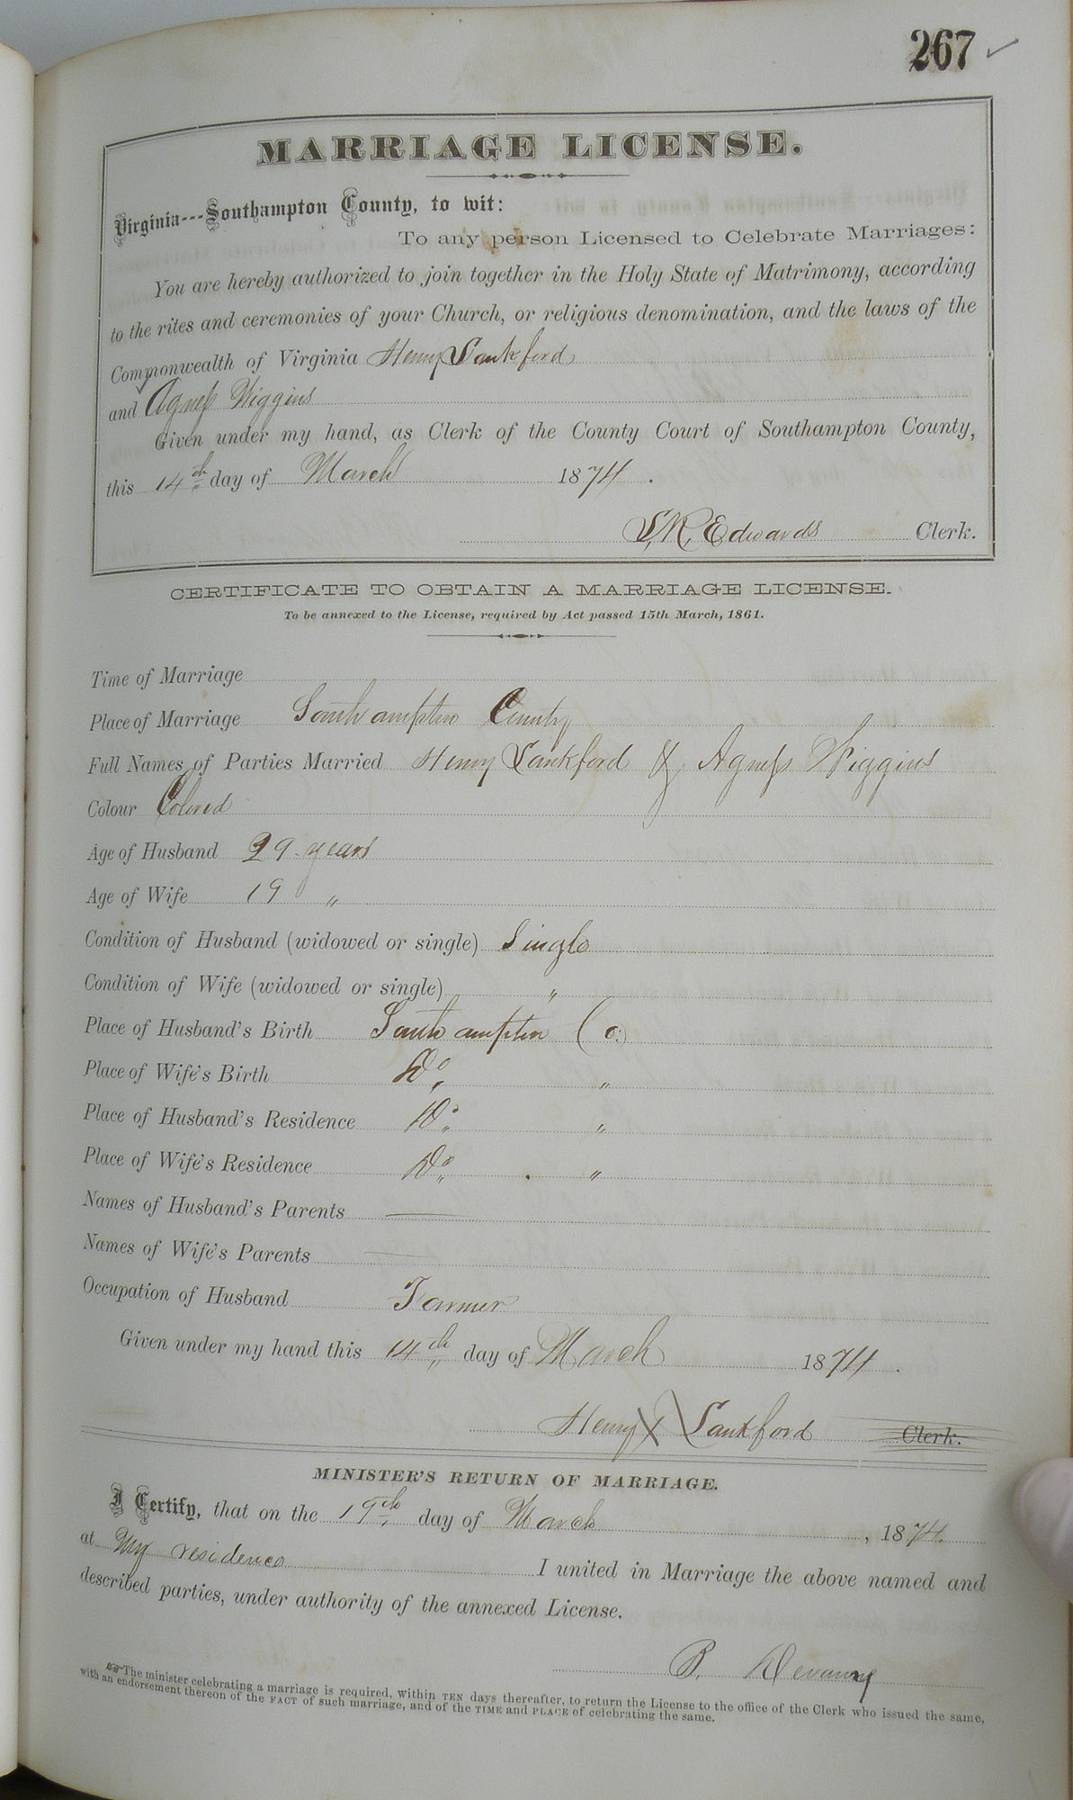 267 ✓
MARRIAGE LICENSE.
Virginia---Southampton County, to wit:
To any person Licensed to Celebrate Marriages:
You are hereby authorized to join together in the Holy State of Matrimony, according
to the rites and ceremonies of your Church, or religious denomination, and the laws of the
Commonwealth of Virginia Henry Lankford
and Agness Wiggins
Given under my hand, as Clerk of the County Court of Southampton County,
this 14th day of March 1874.
L. R. Edwards Clerk.
CERTIFICATE TO OBTAIN A MARRIAGE LICENSE.
To be annexed to the License, required by Act passed 15th March, 1861.
Time of Marriage
Place of Marriage Southampton County
Full Names of Parties Married Henry Lankford & Agness Wiggins
Colour Colored
Age of Husband 29 years
Age of Wife 19 "
Condition of Husband (widowed or single) Single
Condition of Wife (widowed or single) "
Place of Husband's Birth Southampton Co:
Place of Wife's Birth Do "
Place of Husband's Residence Do "
Place of Wife's Residence Do "
Names of Husband's Parents —
Names of Wife's Parents —
Occupation of Husband Farmer
Given under my hand this 14th day of March 1874.
Henry X Lankford Clerk.
MINISTER'S RETURN OF MARRIAGE.
I Certify, that on the 19th day of March, 1874.
at My residence I united in Marriage the above named and
described parties, under authority of the annexed License.
B. Devany
The minister celebrating a marriage is required, within TEN days thereafter, to return the License to the office of the Clerk who issued the same,
with an endorsement thereon of the FACT of such marriage, and of the TIME and PLACE of celebrating the same.